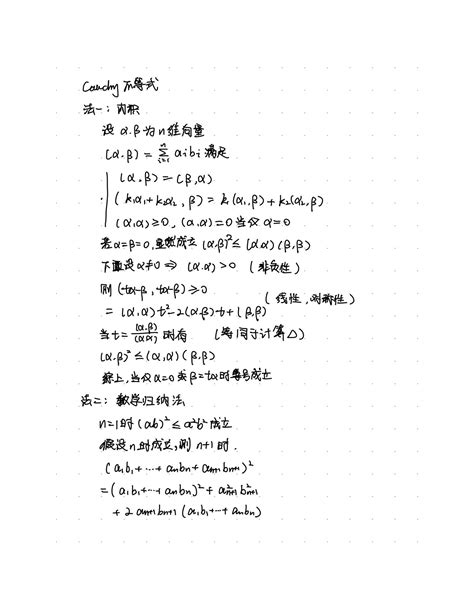 Cauchy 不等式
法一：内积
设 α.β 为 n 维向量
(α.β) = ∑_{i=1}^{n} aibi 满足
(α.β) = (β,α)
(k₁α₁+k₂α₂, β) = k₁(α₁,β)+k₂(α₂,β)
(α,α)≥0, (α.α)=0 当仅 α=0
若α=β=0,显然成立 (α.β)²≤(α.α)(β,β)
下面设 α≠0 ⇒ (α.α)>0 (非负性)
则 (tα-β, tα-β)≥0
(线性,对称性)
= (α,α)t²-2(α.β)t+(β,β)
当 t = (α.β)/(α.α) 时有 (等同于计算△)
(α.β)² ≤ (α,α)(β.β)
综上,当仅 α=0 或 β=tα时等号成立
法二：数学归纳法
n=1时 (ab)² ≤ a²b² 成立
假设 n 时成立,则 n+1 时.
(a₁b₁+⋯+anbn+an+1bn+1)²
=(a₁b₁+⋯+anbn)²+a²n+1b²n+1
+2an+1bn+1(a₁b₁+⋯+anbn)